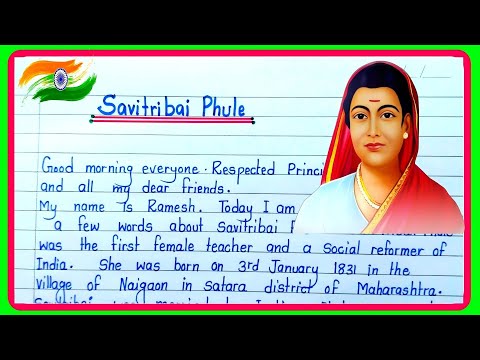 Savitribai Phule
Good morning everyone. Respected Princi
and all my dear friends.
My name is Ramesh. Today I am
a few words about Savitribai
was the first female teacher and a social reformer of
India. She was born on 3rd January 1831 in the
village of Naigaon in satara district of Maharashtra.